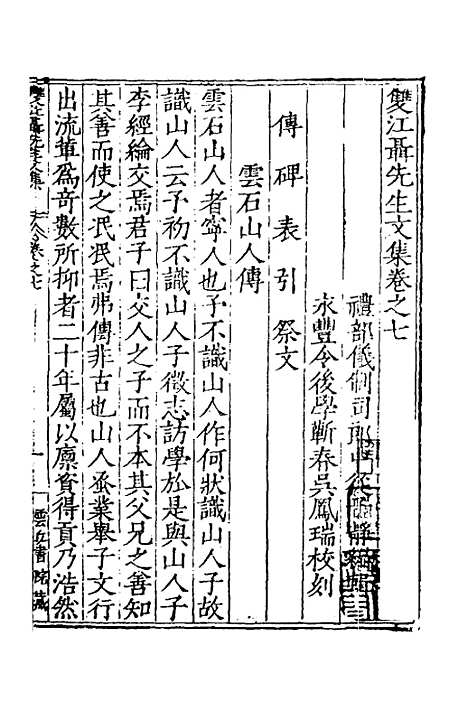 雙江聶先生文集卷之七
禮部儀制司郎
永豐令後學蘄春吳鳳瑞校刻
傳碑表引祭文
雲石山人傳
雲石山人者寧人也予不識山人作何狀識山人子故
識山人云予初不識山人子徵志訪學於是與山人子
李經綸交焉君子曰交人之子而不本其父兄之善知
其善而使之泯泯焉弗傳非古也山人蚤業舉子文行
出流輩為奇數所抑者二十年屬以廩資得貢乃浩然
雙江聶先生文集
卷之七
雲丘書院藏